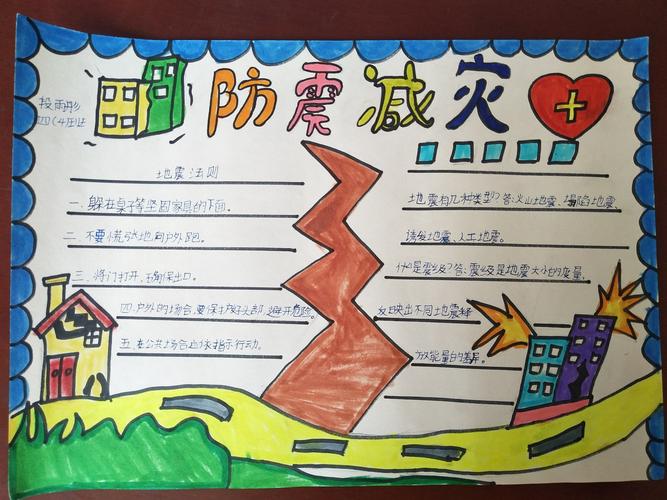 防震减灾
四(4)班
地震法则
一、躲在桌子等坚固家具的下面。
二、不要慌张地向户外跑。
三、将门打开、确保出口。
四、户外的场合,要保护好头部,避开危险。
五、在公共场合应依指示行动。
地震有几种类型?答:火山地震、塌陷地震、
诱发地震、人工地震。
什么是震级?答:震级是地震大小的度量,
反映出不同地震释
放能量的差异。